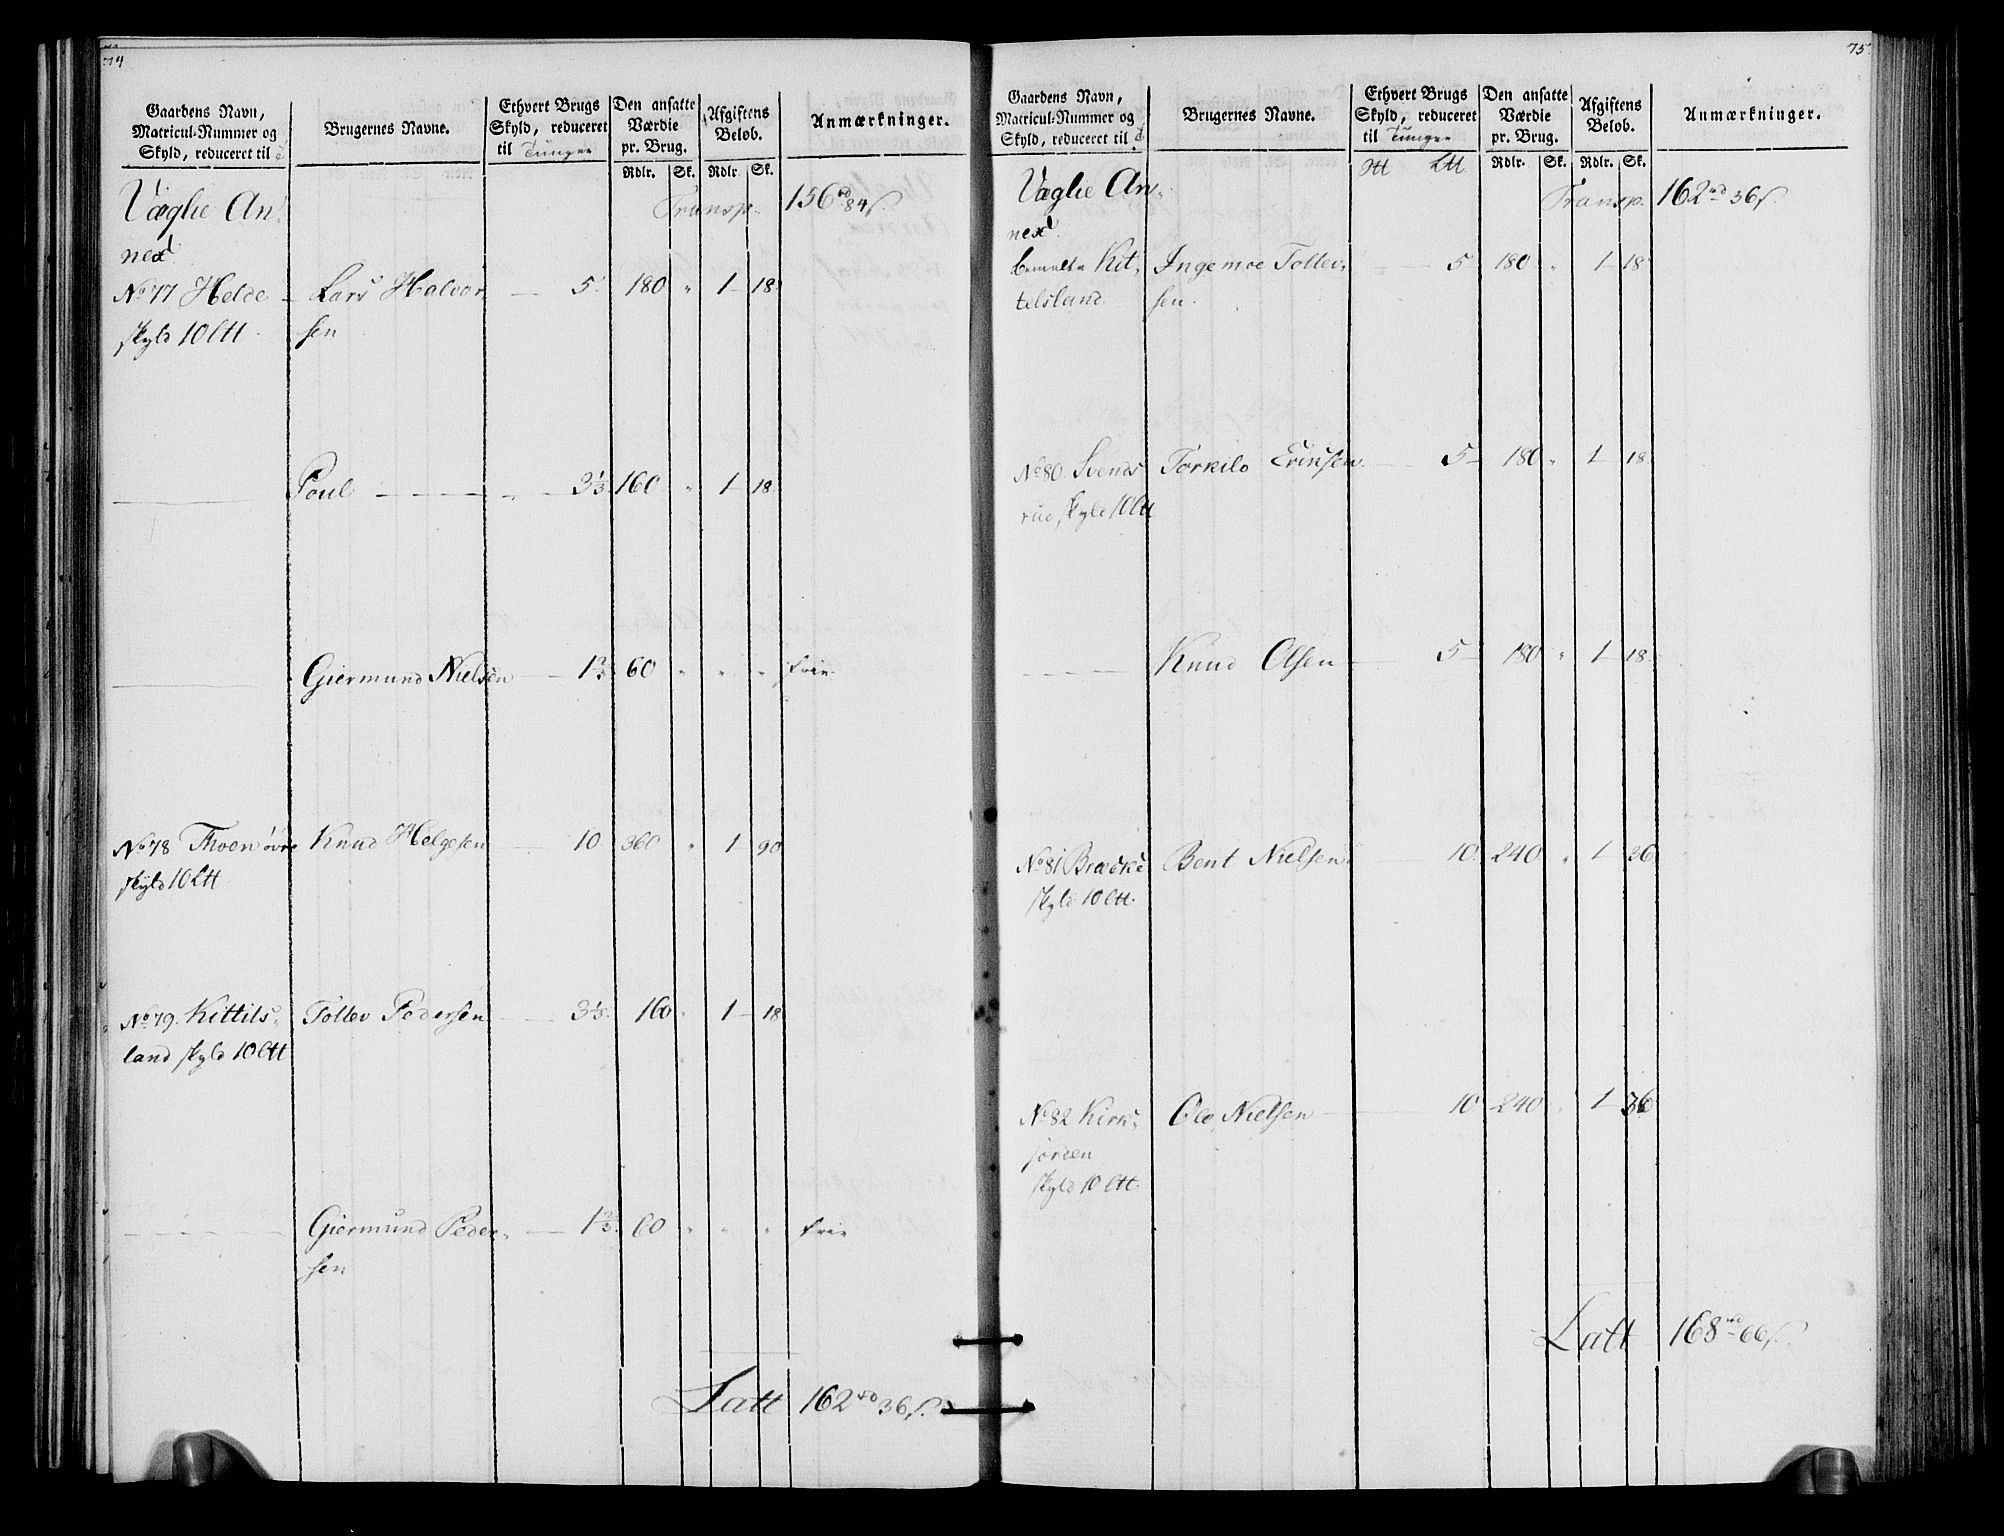 74
Gaardens Navn, Matricul-Nummer og Skyld, reduceret til
Brugernes Navne.
Ethvert Brugs Skyld, reduceret til Tunger
Den ansatte Værdie pr. Brug.
Afgiftens Beløb.
Anmærkninger.
Rdlr. Sk. Rdlr. Sk.
Væglie An- Transp. 156 rd 84 s.
nex
No 77 Helde Lars Halvor, 5 180 " 1 18
skyld 10 Ltt sen
Poul 3 1/3 160 " 1 18
Giermund Nielsen 1 2/3 60 " " " frie
No 78 Thoen øvre Knud Helgesen 10 360 " 1 90
skyld 10 Ltt
No 79. Kittils, Tollev Pedersen 3 1/3 160 " 1 18
land skyld 10 Ltt
Giermund Peder, 1 2/3 60 " " " frie
sen
Latt 162 rd 36 s.
75
Gaardens Navn, Matricul-Nummer og Skyld, reduceret til
Brugernes Navne.
Ethvert Brugs Skyld, reduceret til Tunger
Den ansatte Værdie pr. Brug.
Afgiftens Beløb.
Anmærkninger.
Htt Ltt Rdlr. Sk. Rdlr. Sk.
Væglie An- Transp. 162 rd 36 s.
nex
bemelte Kit, Ingemoe Tollev, 5 180 " 1 18
telsland. sen.
No 80. Svends Torkild Erichsen 5 180 " 1 18
rud skyld 10 Ltt
Knud Olsen 5 180 " 1 18
No 81 Brække Bent Nielsen 10 240 " 1 36
skyld 10 Ltt.
No 82 Kirk, Ole Nielsen 10 240 " 1 36
jorden
skyld 10 Ltt.
Latt 168 rd 66 s.